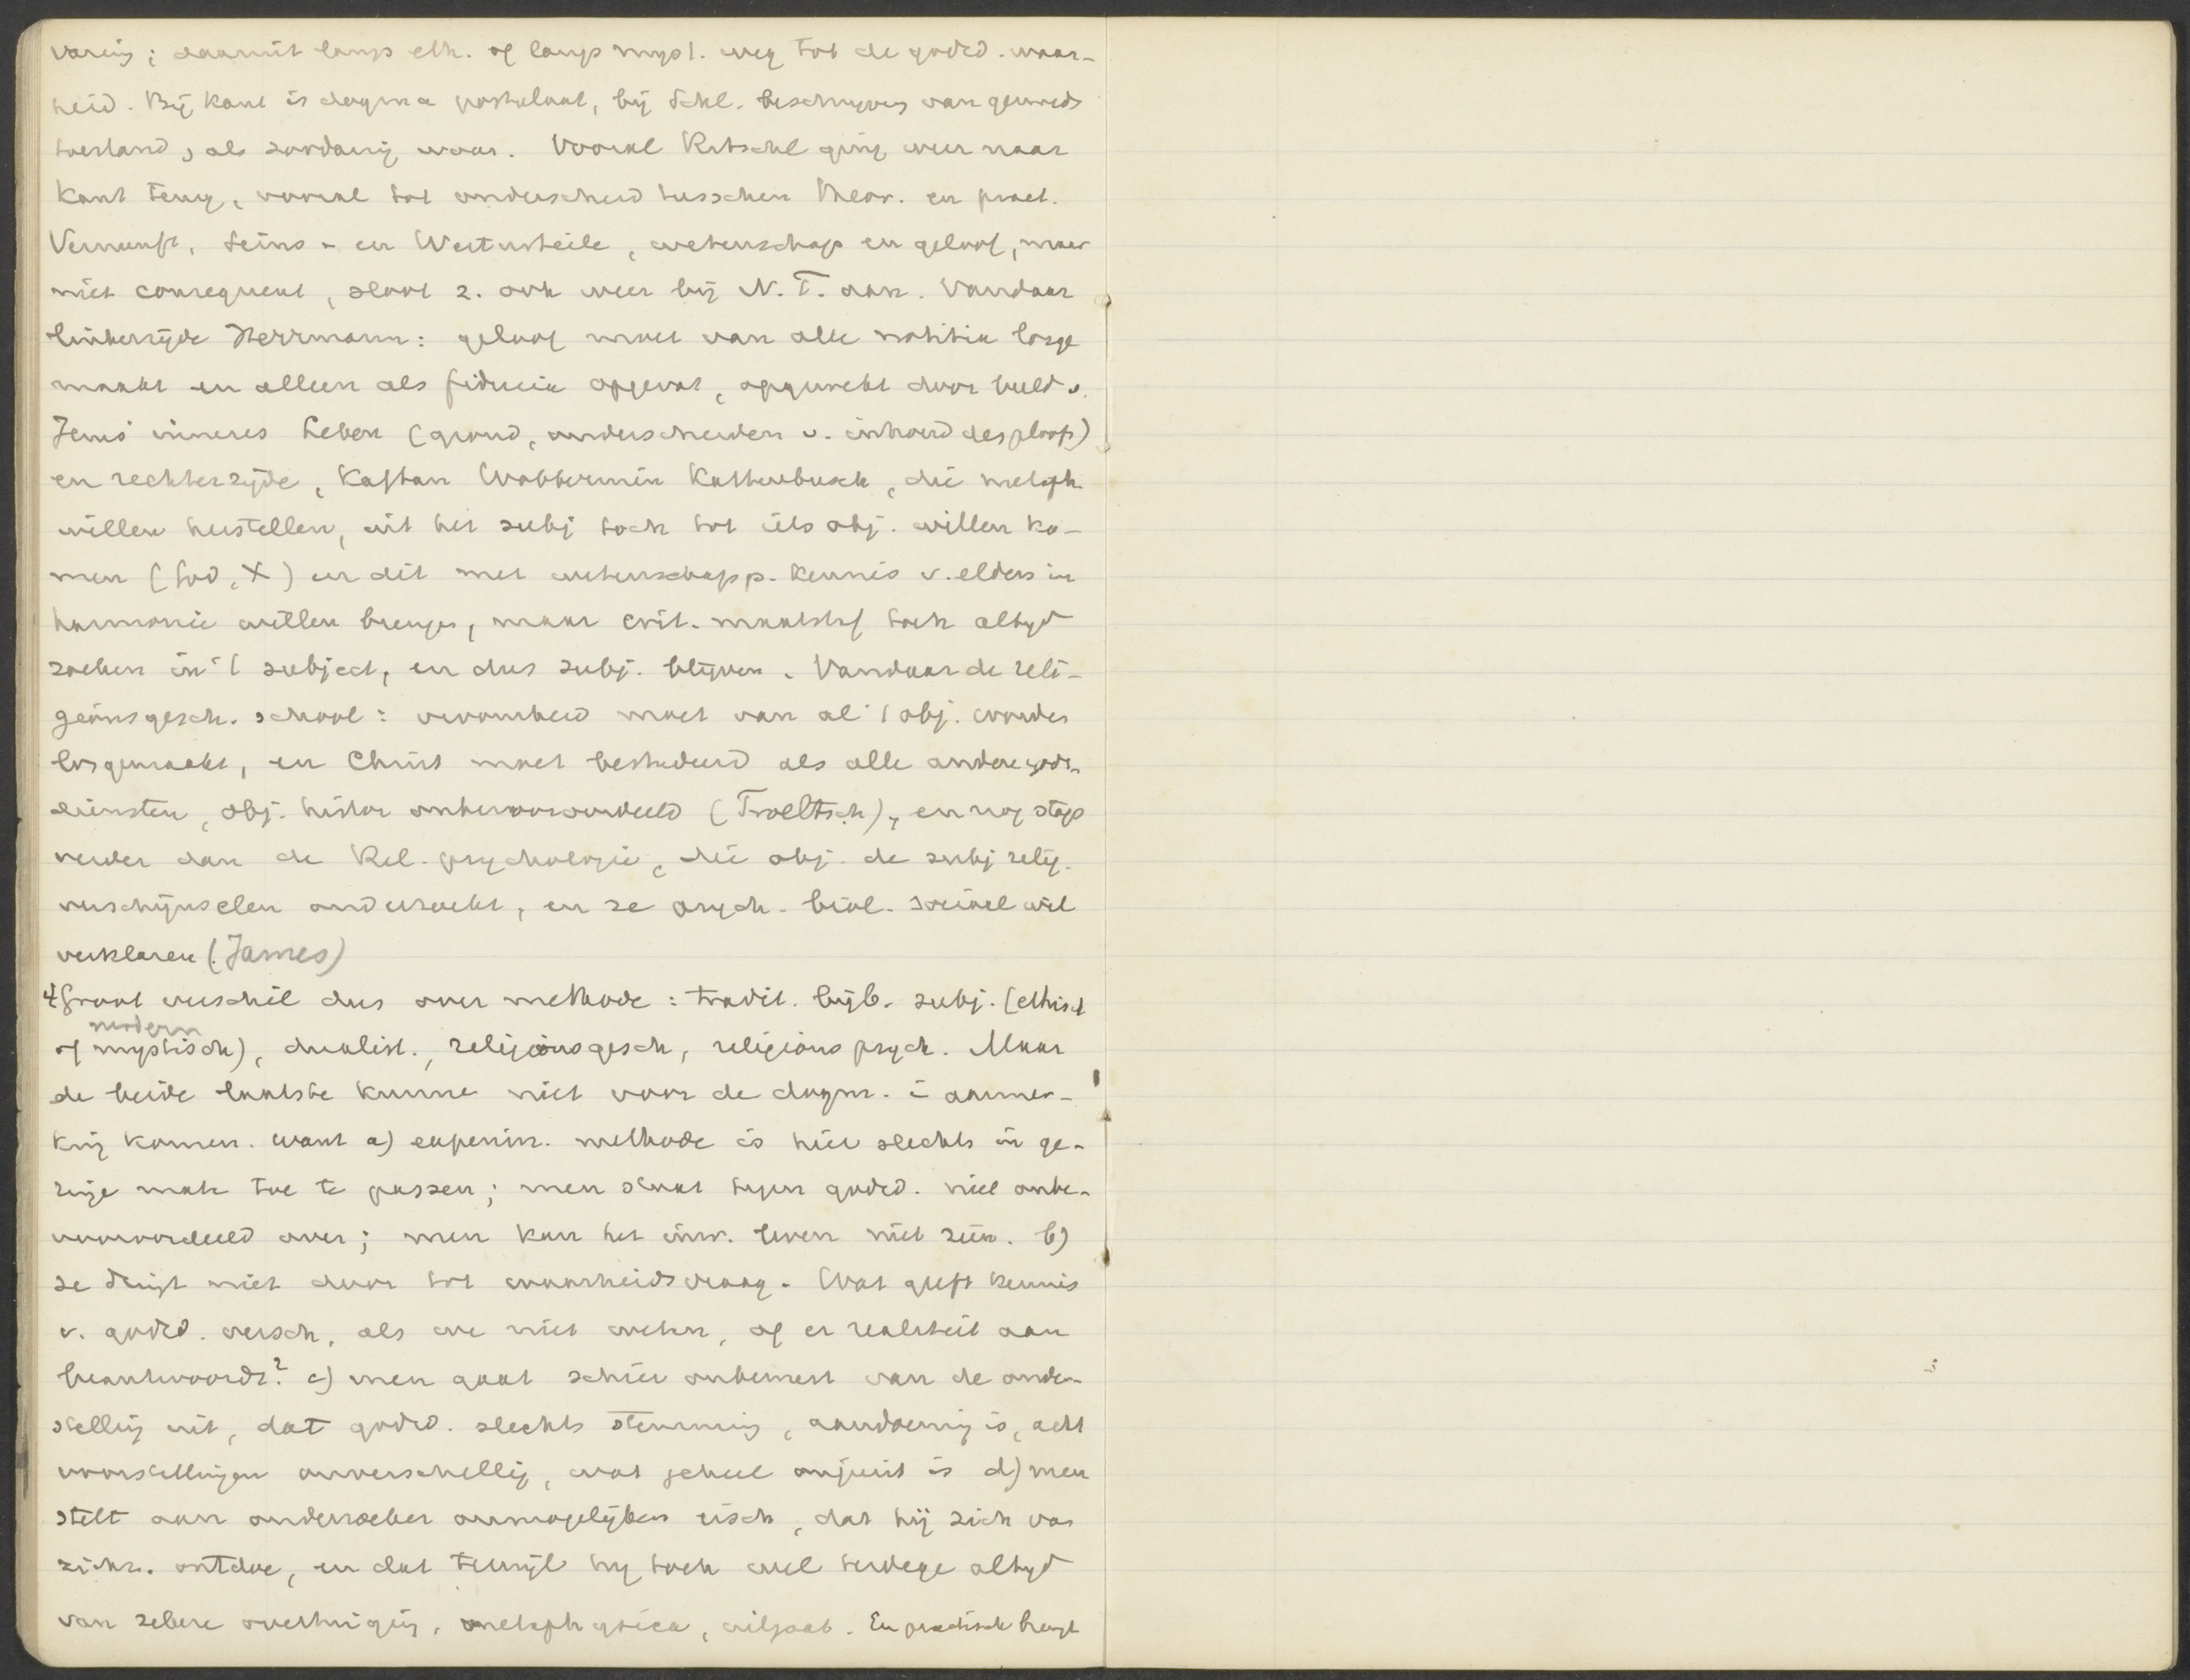 varing; daaruit langs eth. of langs myst. weg tot de godsd. waar-
heid. Bij Kant is dogma postulaat, bij Schl. beschrijving van gemoeds
toestand, als zoodanig waar. Vooral Ritschl ging weer naar
Kant terug, vooral tot onderscheid tusschen theor. en pract.
Vernunft, Seins- en Werturteile, wetenschap en geloof, maar
niet consequent, sloot z. ook weer bij N.T. aan. Vandaar
linkerzijde Herrmann: geloof moet van alle notitia losge
maakt en alleen als fiducia opgevat, opgewekt door beeld v.
Jezus' inneres Leben (grond, onderscheiden v. inhoud des geloofs)
en rechterzijde, Kaftan Wobbermin Kattenbusch, die metaph.
willen herstellen, uit het subj toch tot iets obj. willen ko-
men (God, X) en dit met wetenschapp. kennis v. elders in
harmonie willen brengen, maar crit. maatstaf toch altijd
zoeken in 't subject, en dus subj. blijven. Vandaar de reli-
gionsgesch. school: vroomheid moet van al 't obj. worden
losgemaakt, en Christ moet bestudeerd als alle andere gods-
diensten, obj. histor onbevooroordeeld (Troeltsch), en nog stap
verder dan de Rel. psychologie, die obj. de subj relig.
verschijnselen onderzoekt, en ze psych. biol. sociaal wil
verklaren (James)
4 Groot verschil dus over methode: tradit. bijb. subj. (ethisch
modern
of mystisch), dualist., religionsgesch, religions psych. Maar
de beide laatste kunne niet voor de dogm. in aanmer-
king komen. Want a) experim. methode is hier slechts in ge-
ringe mate toe te passen; men staat tegen godsd. niet onbe-
vooroordeeld over; men kan het inw. leven niet zien. b)
ze dringt niet door tot waarheidsvraag. Wat geeft kennis
v. godsd. versch, als we niet weten, of er realiteit aan
beantwoordt? c) men gaat schier onbemerkt van de onder-
stelling uit, dat godsd. slechts stemming, aandoening is, acht
voorstellingen onverschillig, wat geheel onjuist is d) men
stelt aan onderzoeker onmogelijken eisch, dat hij zich van
zichz. ontdoe, en dat terwijl hij toch wel terdege altijd
van zekere overtuiging, metaphysica, uitgaat. En practisch brengt